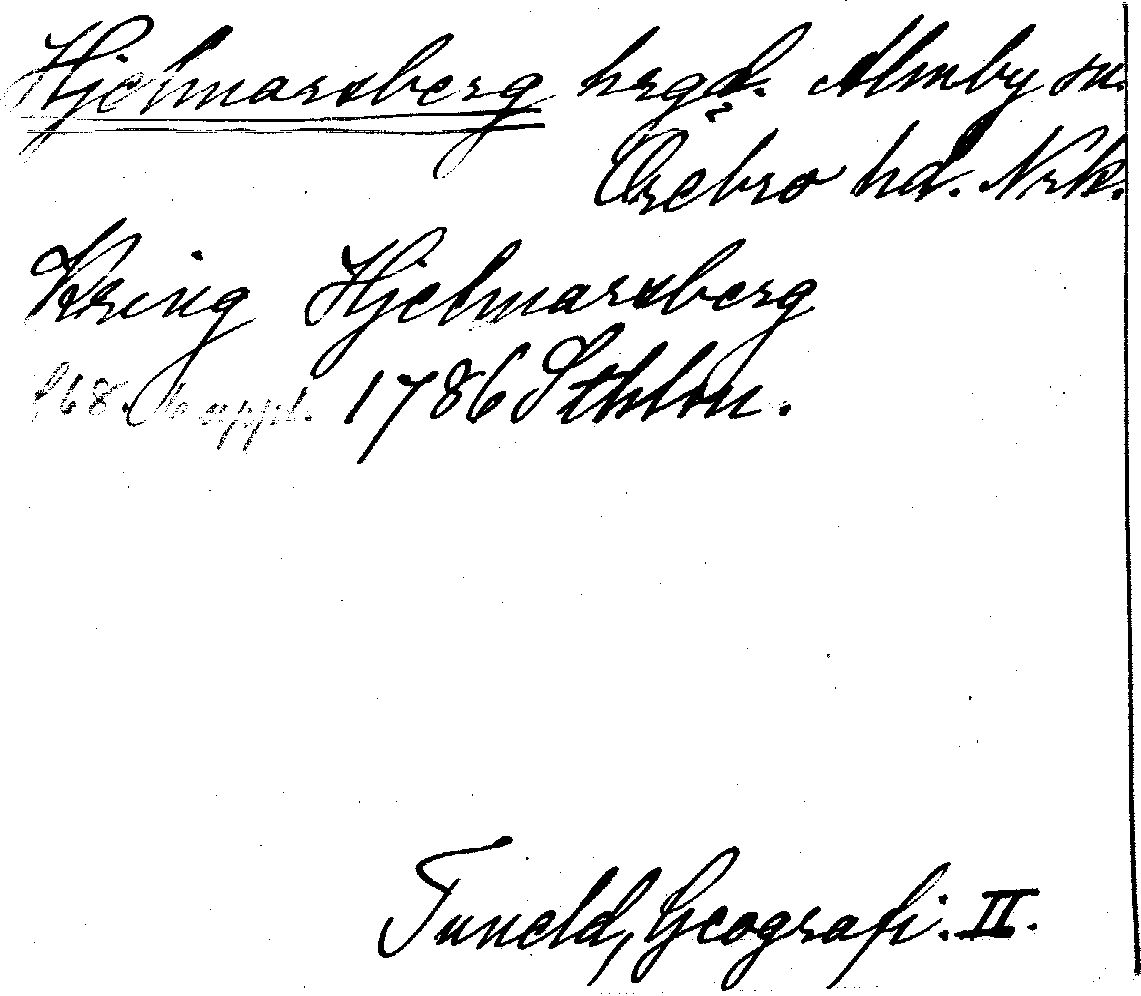 Hjelmarsberg hrgd. Almby sn.
Örebro hd. Nrk.
Kring Hjelmarsberg
S68. uppl. 1786 Sthlm.
Tuneld, Geografi. II.